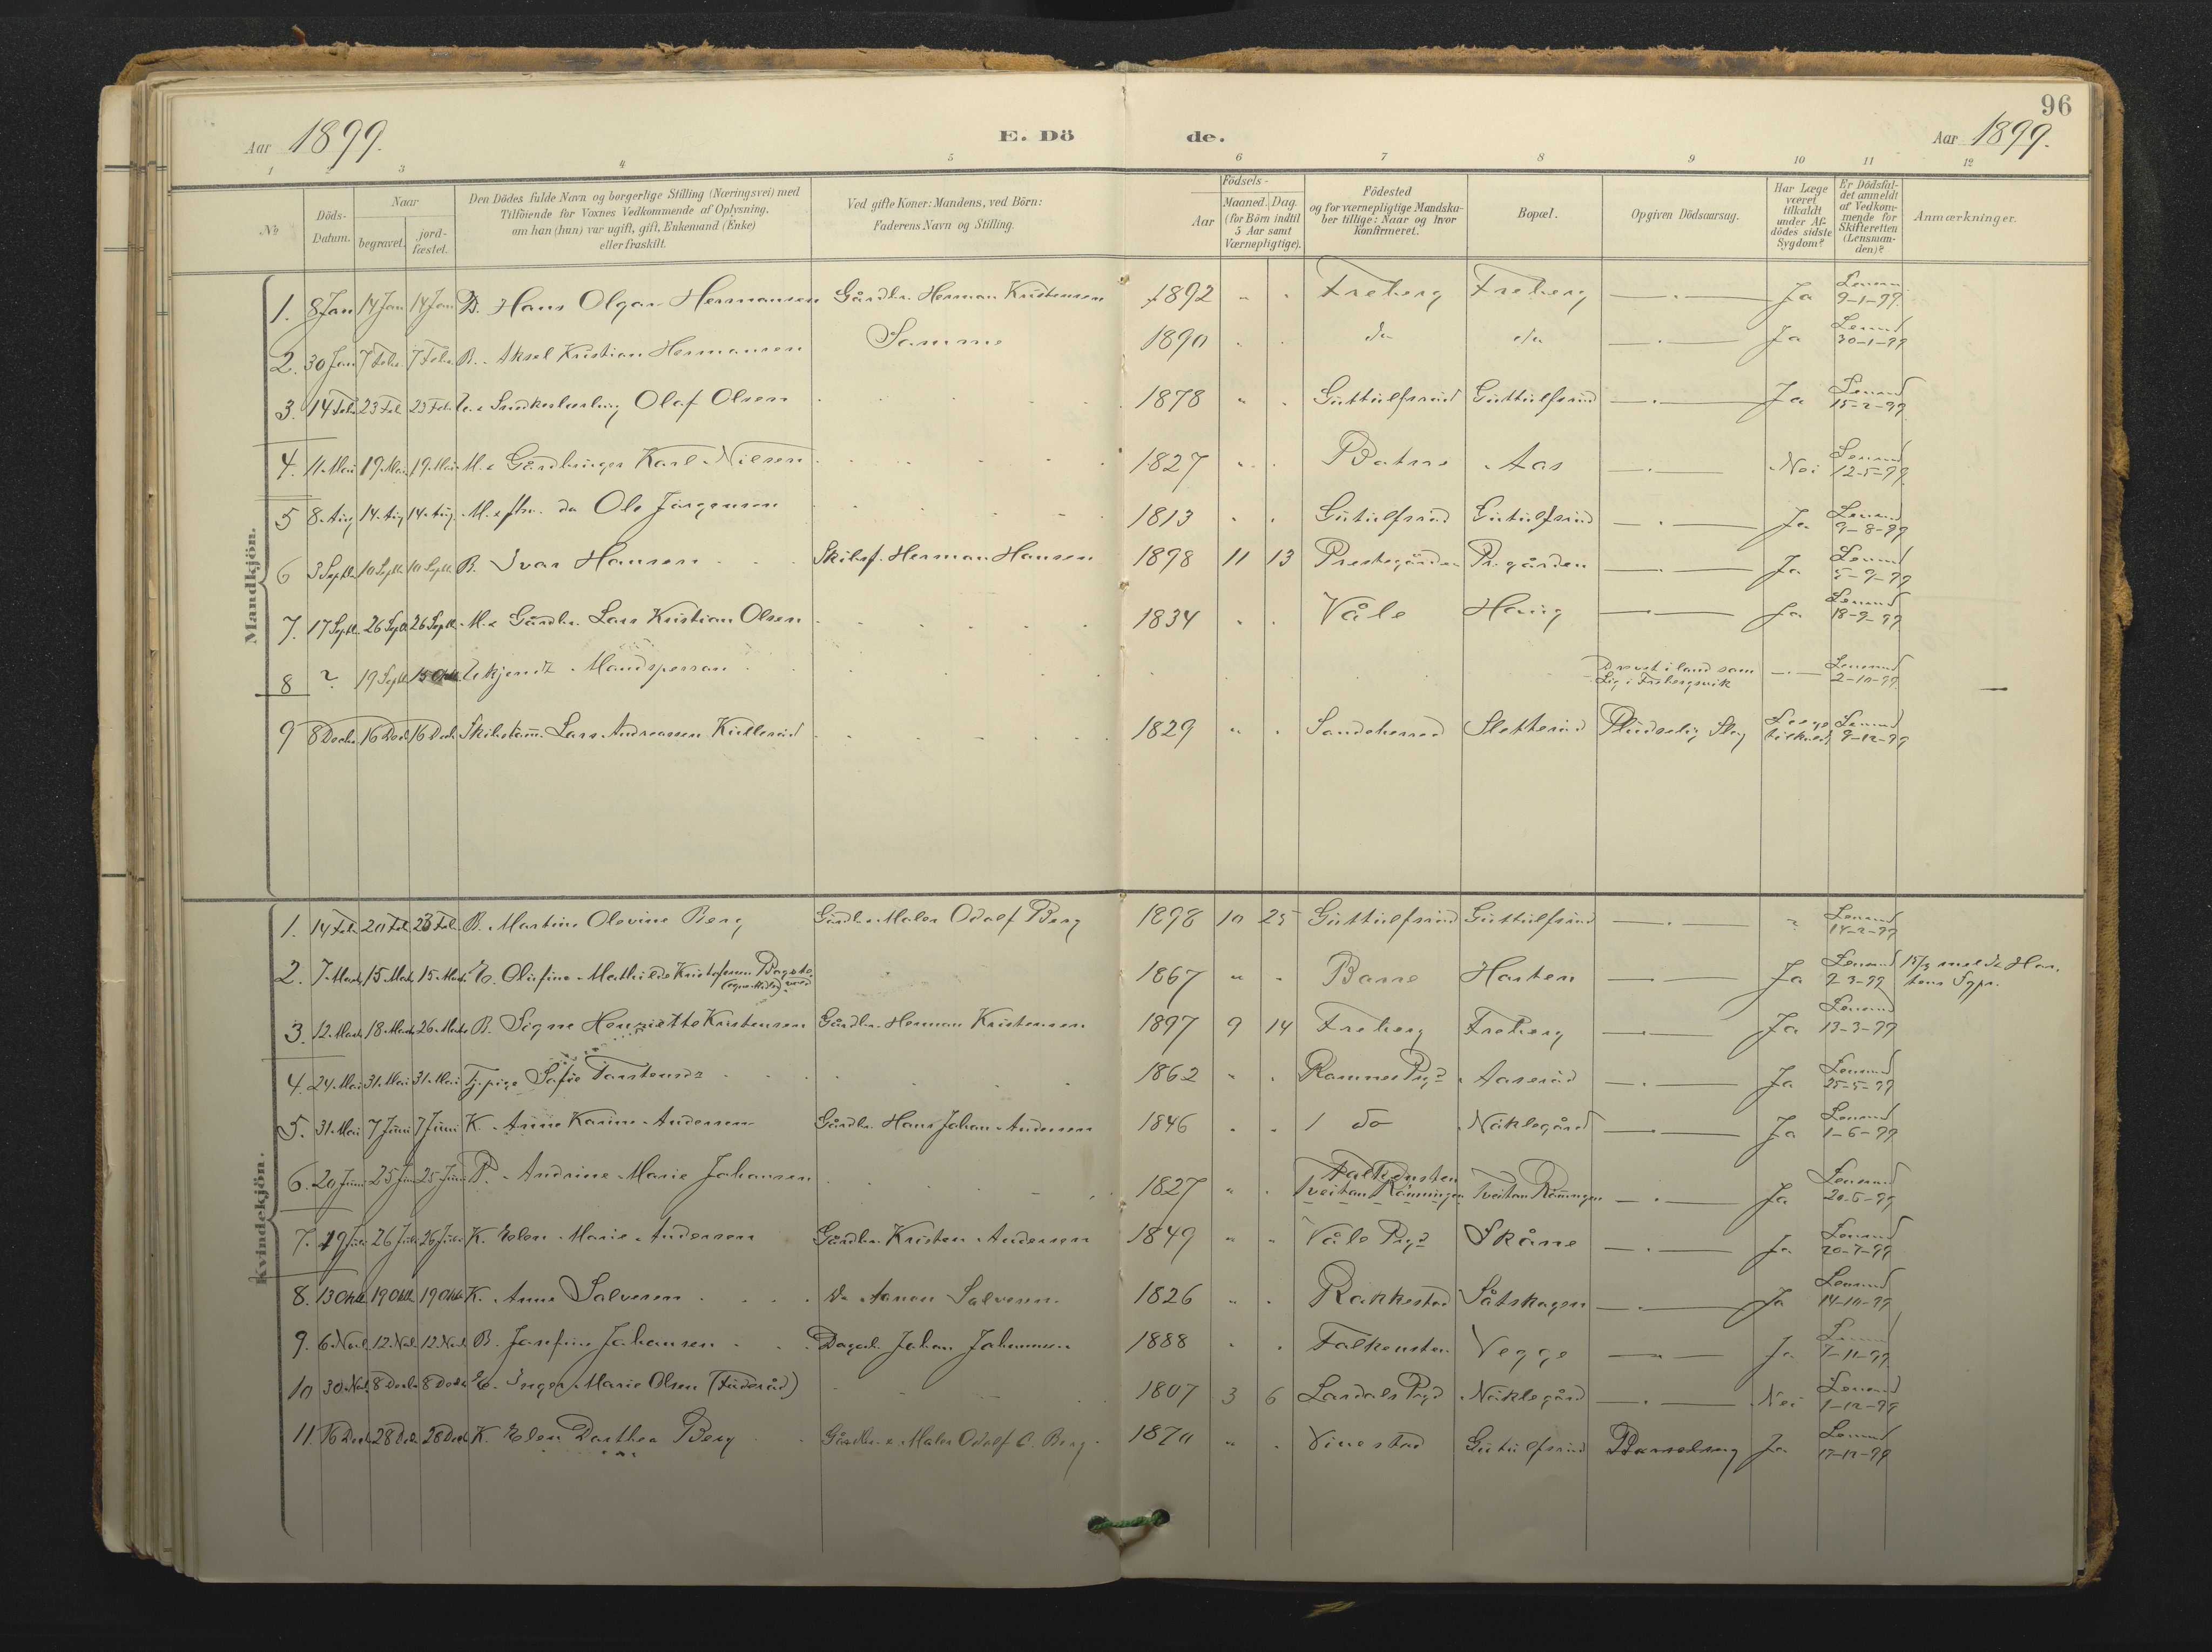 96
Aar 1899. E. Döde. Aar 1899.
1 2 3 4 5 6 7 8 9 10 11 12
No
Döds-Datum.
Naar
begravet.
jord-fæstet.
Den Dödes fulde Navn og borgerlige Stilling (Næringsvei) med
Tilföiende for Voxnes Vedkommende af Oplysning,
om han (hun) var ugift, gift, Enkemand (Enke)
eller fraskilt.
Ved gifte Koner: Mandens, ved Börn:
Faderens Navn og Stilling.
Födsels-
Aar
Maaned. Dag.
(for Börn indtil
5 Aar samt
Værnepligtige).
Födested
og for værnepligtige Mandska-
ber tillige: Naar og hvor
konfirmeret.
Bopæl.
Opgiven Dödsaarsag.
Har Læge
været
tilkaldt
under Af-
dödes sidste
Sygdom?
Er Dödsfal-
det anmeldt
af Vedkom-
mende for
Skifteretten
(Lensman-
den)?
Anmærkninger.
Mandkjön.
1. 8 Jan 14 Jan 14 Jan B. Hans Olgar Hermansen Gårdbr. Herman Kristensen 1892 " " Freberg Freberg —.— Ja Lensm 9-1-99
2. 30 Jan 7 Feb. 7 Feb. B. Aksel Kristian Hermansen Samme 1890 do do —.— Ja Lensmd 30-1-99
3. 14 Feb 23 Feb 23 Feb. U. Snedkerlærling Olaf Olsen 1878 " " Guttulfsrud Guttulfsrud —.— Ja Lensmd 15-2-99
4. 11. Mai 19 Mai 19. Mai M. Gårdbruger Karl Nilsen 1827 Batns Aas —.— Nei Lensmd 12-5-99
5 8. Aug 14. Aug 14. Aug. do Ole Jörgensen 1813 Gutulfsrud Gutulfsrud —.— Ja Lensmd 9-8-99
6 3 Septb. 10 Septb. 10 Septb. B. Ivar Hansen Skibsf. Herman Hansen 1898 11 13 Prestegården Pr.gården —.— Ja Lensmd 5-9-99
7. 17 Septb. 26 Septb 26 Septb. Gårdbr. Lars Kristian Olsen 1834 Våle Haug —.— Ja Lensmd 18-9-99
8 ? 19 Septb 15 Oktb Ukjendt Mandsperson Drevet i land som Lig i Frebergsvik —.— Lensmd 2-10-99
9 8 Decbr 16 Decb 16 Decb. Skibstöm. Lars Andreassen Kullerud 1829 " Sandeherred Sletterud Pludselig Slag Læge tilkaldt Lensmd 9-12-99
Kvindekjön.
1. 14 Feb. 20 Feb. 23 Feb. B. Martine Olevine Berg Gårdbr. Maler Odolf Berg 1898 10 25 Guttulfsrud Guttulfsrud —.— " Lensmd 14-2-99
2. 7. Marts 15 Marts 15. Marts E. Olufine Mathilde Kristofersen 1867 " " Barre Harten —.— Ja Lensmd 2-3-99 15/3
3. 12. Marts 18. Marts 26. Marts B. Signe Henriette Kristensen Gårdbr. Herman Kristensen 1897 9 14 Freberg Freberg —.— Ja Lensmd 13-3-99
4. 24. Mai 31. Mai 31. Mai Tj.pige Sofie Torstensdr 1862 " Ramnes Prgd Aaserud —.— Ja Lensmd 25-5-99
5. 31. Mai 7 Juni 7 Juni K. Anne Karine Andersen Gårdbr. Hans Johan Andersen 1846 do Näklegård —.— Ja Lensmd 1-6-99
6. 20 Juni 25 Juni 25 Juni P. Andrine Marie Johansen 1827 " Falkensten Tveitan Römningen Tveitan Römningen —.— Ja Lensmd 20-6-99
7. 19 Juli 26 Juli 26 Juli K. Elen Marie Andersen Gårdbr. Kristen Andersen 1849 " " Våle Prgd Skåne —.— Ja Lensmd 20-7-99
8. 13 Oktb 19 Oktb. 19 Oktb. K. Anne Salvesen do Amon Salvesen 1826 " Rakkestad Såtskogen —.— Ja Lensmd 14-10-99
9. 6 Novb. 12. Nvb. 12. Nvb. B. Josefine Johansen Dagarb. Johan Johannsen 1888 Falkensten Vegge —.— Ja Lensmd 7-11-99
10 30 Novb. 8 Decbr 8 Decb. E. Inger Marie Olsen (Föderåd) 1807 3 6 Lardals Prgd Näklegård —.— Nei Lensmd 1-12-99
11. 16 Decb 28 Decb. 28 Decb K. Elen Dorthea Berg Gårdbr. & Maler Odolf O. Berg 1870 " Vinestad Gutulfsrud Barselseng Ja Lensmd 17-12-99